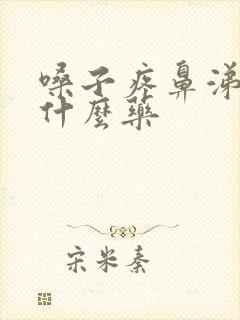 嗓子疼鼻涕
什麼藥
宋米秦